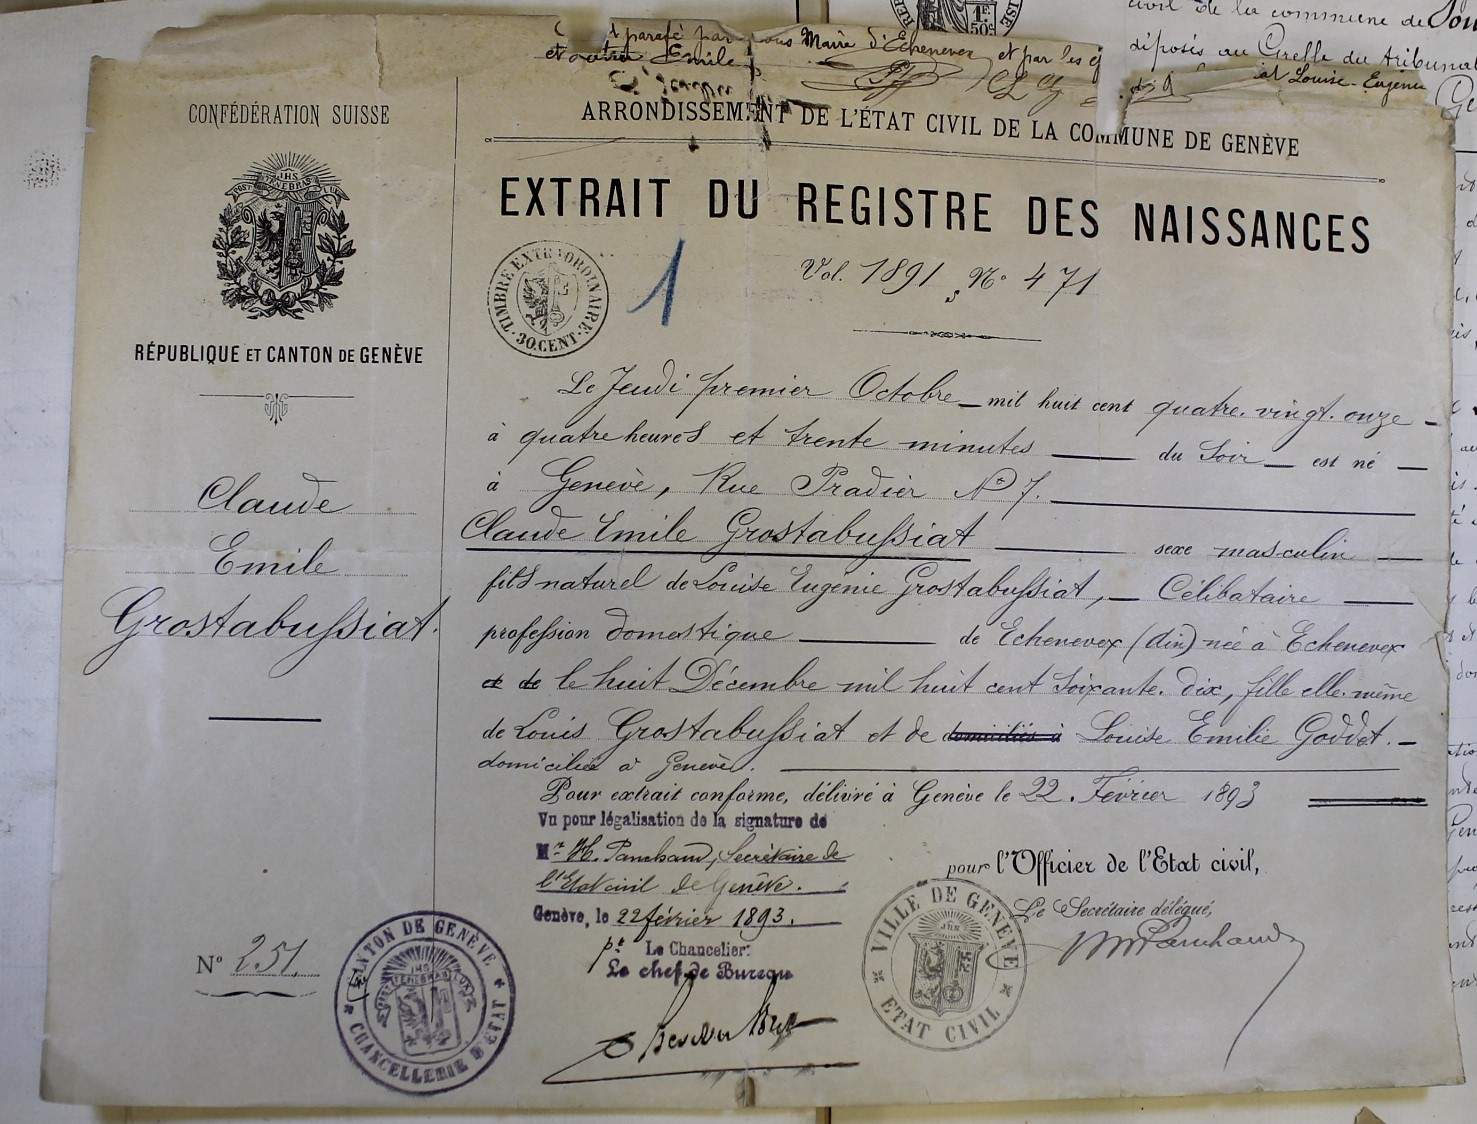 civil de la commune de
déposés au Greffe du tribunal
1F.
50c
parafé par nous Maire d'Echenevex et par les
et Emile
Louise-Eugénie
CONFÉDÉRATION SUISSE
POST TENEBRAS LUX
JHS
RÉPUBLIQUE ET CANTON DE GENÈVE
Claude
Emile
Grostabussiat.
N° 251.
CANTON DE GENÈVE
CHANCELLERIE D'ÉTAT
ARRONDISSEMENT DE L'ÉTAT CIVIL DE LA COMMUNE DE GENÈVE
EXTRAIT DU REGISTRE DES NAISSANCES
TIMBRE EXTRAORDINAIRE
30 CENT
1
Vol. 1891, N° 471
Le Jeudi premier Octobre mil huit cent quatre-vingt-onze
à quatre heures et trente minutes du Soir est né
à Genève, Rue Pradier N° 7.
Claude Emile Grostabussiat sexe masculin
fils naturel de Louise Eugénie Grostabussiat, Célibataire
profession domestique de Echenevex (Ain) née à Echenevex
et de le huit Décembre mil huit cent soixante-dix, fille elle-même
de Louis Grostabussiat et de domiciliés à Louise Emilie Goddet.
domiciliée à Genève.
Pour extrait conforme, délivré à Genève le 22. Février 1893
Vu pour légalisation de la signature de
Mr. H. Panchaud, Secrétaire de
l'Etat civil de Genève.
Genève, le 22 février 1893.
pr. Le Chancelier:
Le chef de Bureau
pour l'Officier de l'Etat civil,
Le Secrétaire délégué,
Panchaud
VILLE DE GENÈVE
ETAT CIVIL